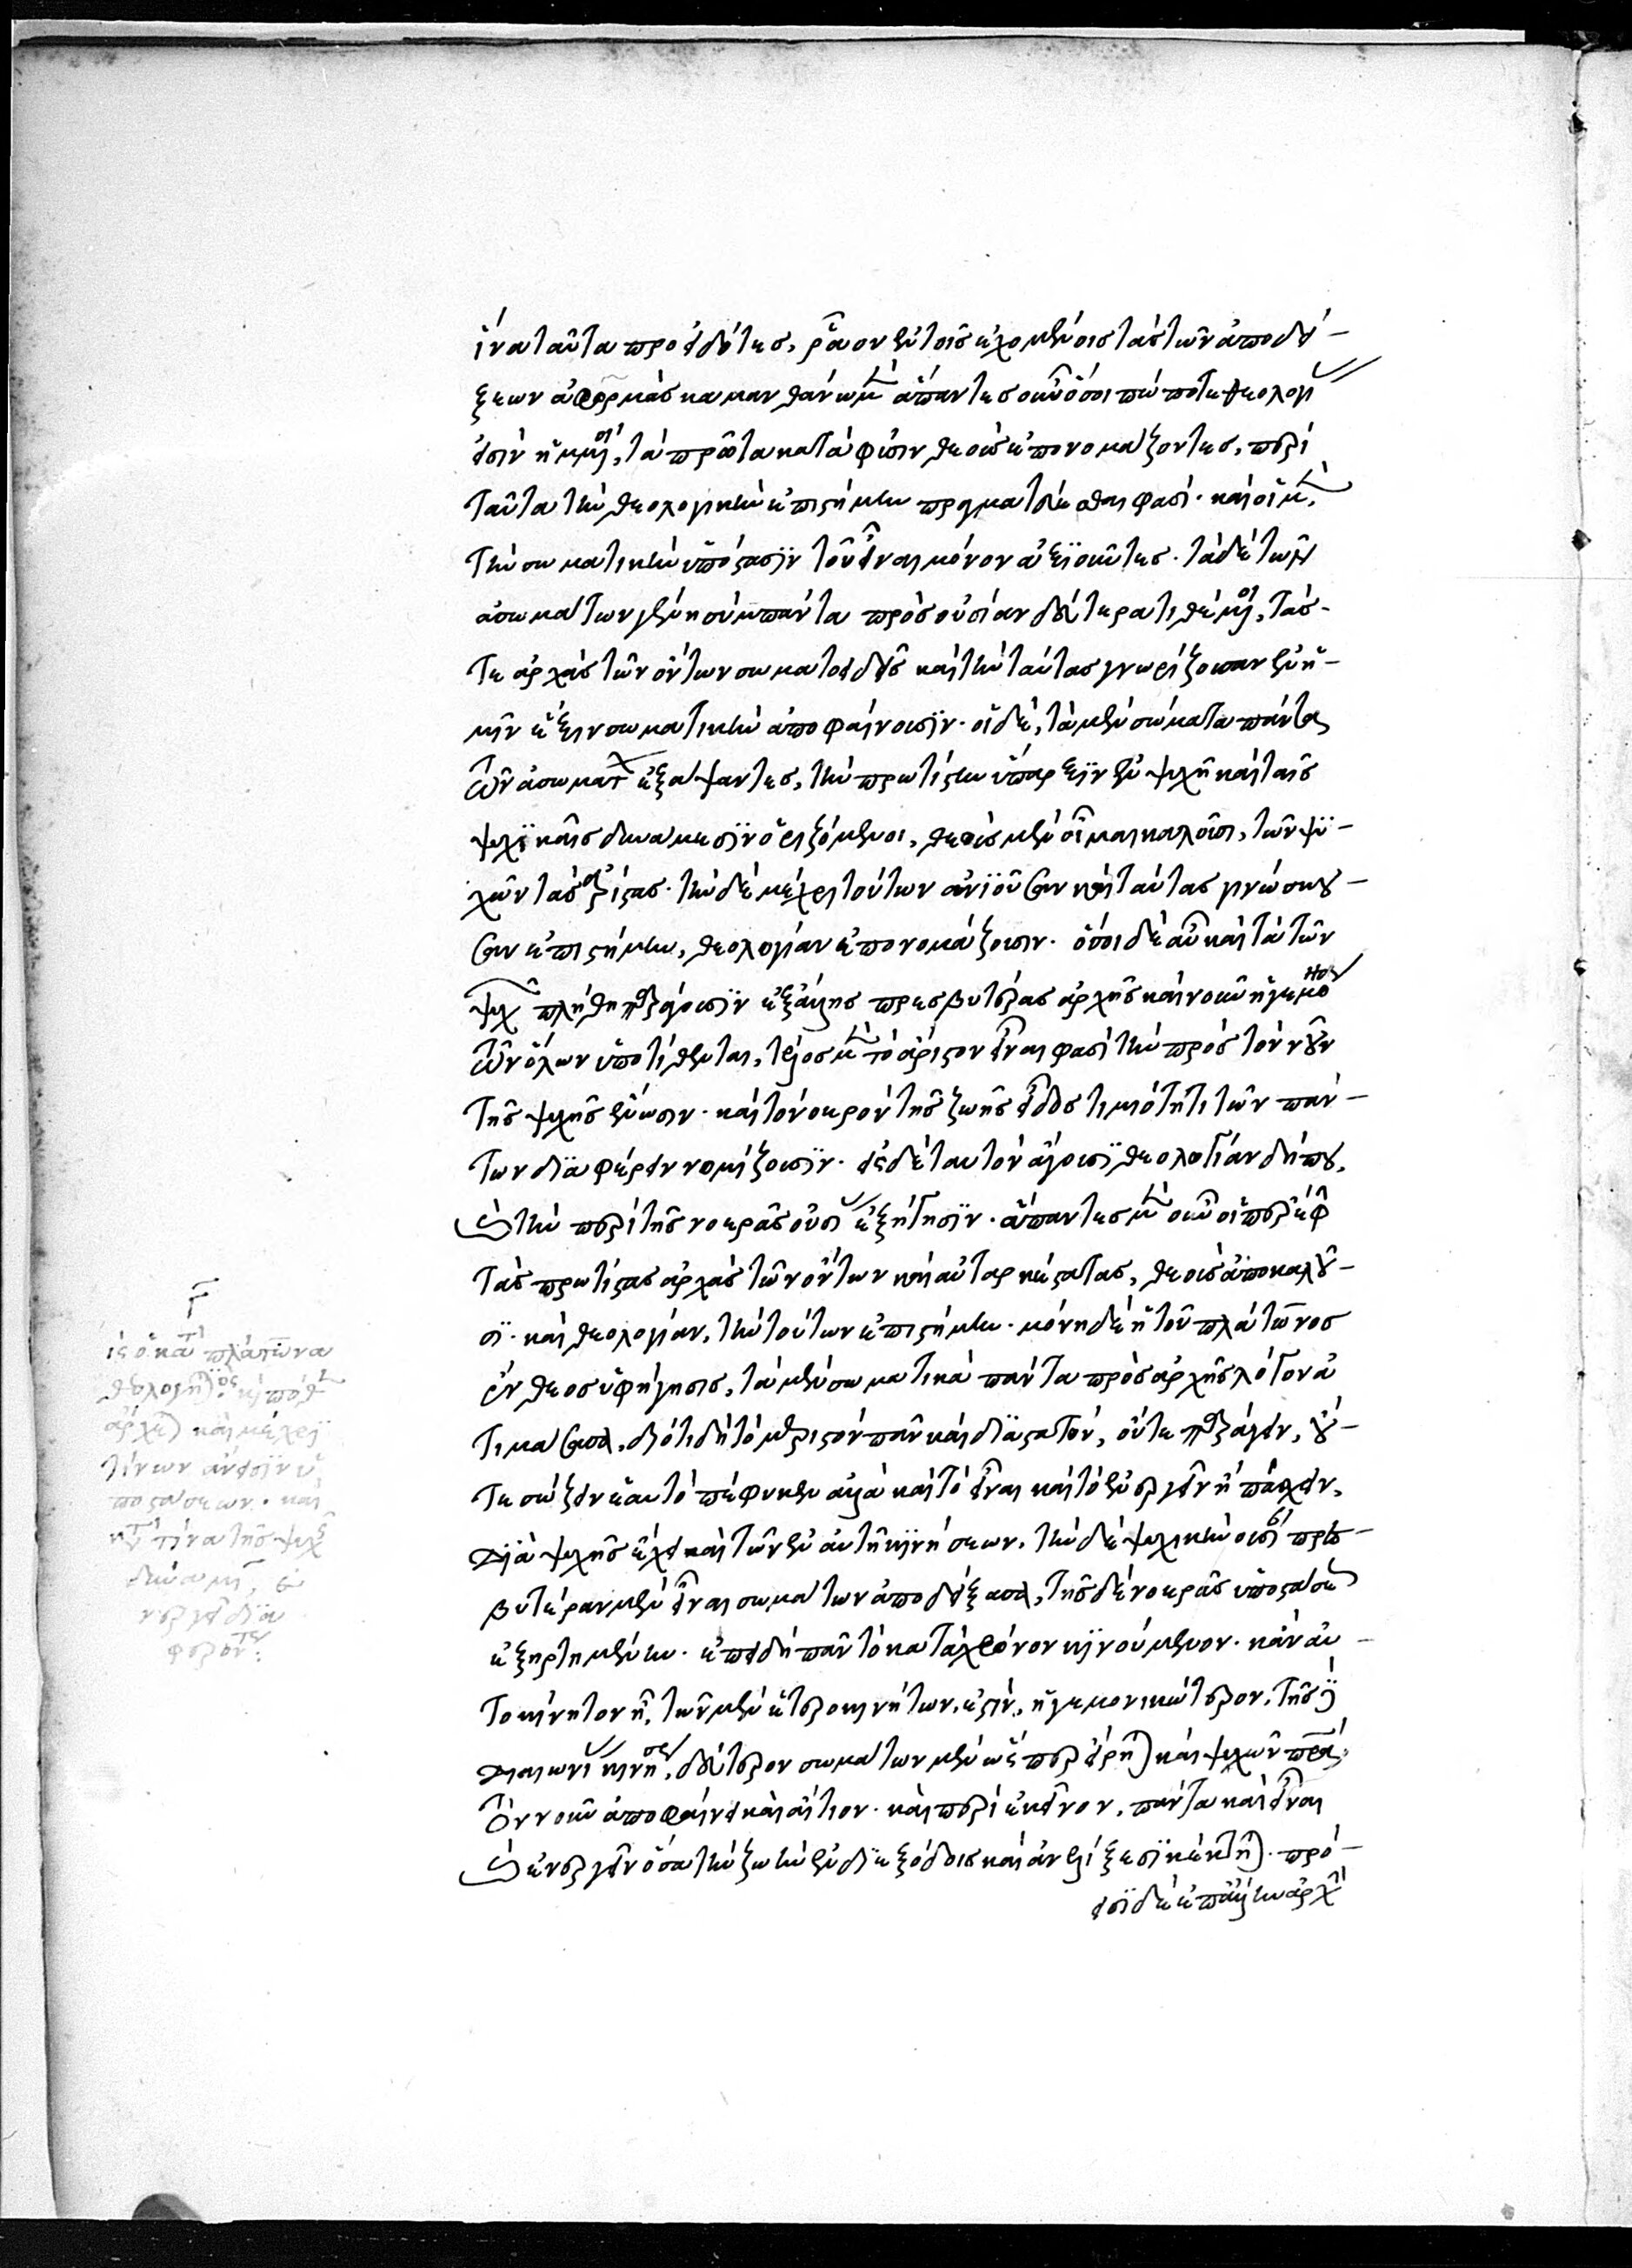 ἵνα ταῦτα προειδότες, ῥᾷον ἐν τοῖς ἐχομένοις τὰς τῶν ἀποδεί-
ξεων ἀφορμὰς καταμανθάνωμεν ἅπαντες οὖν ὅσοι πώποτε θεολογί
εἰσὶν ἡμμένοι, τὰ πρῶτα κατὰ φύσιν θεοὺς ἐπονομάζοντες, περὶ
ταῦτα τὴν θεολογικὴν ἐπιστήμην πραγματεύεσθαι φασί· καὶ οἱ μὲν,
τὴν σωματικὴν ὑπόστασϊν τοῦ εἶναι μόνον ἀξϊοῦντες· τὰ δὲ τῶν
ἀσωμάτων γένη σύμπαντα πρὸς οὐσίαν δεύτερα τιθέμενοι, τάς-
τε ἀρχὰς τῶν ὄντων σωματοειδεῖς καὶ τὴν ταύτας γνωρίζουσαν ἐν ἡ-
μῖν ἕξιν σωματικὴν ἀποφαίνουσϊν· οἱ δὲ, τὰ μὲν σώματα πάντα
τῶν ἀσωμάτων ἐξάψαντες, τὴν πρωτίστην ὕπαρξϊν ἐν ψυχῇ καὶ ταῖς
ψυχϊκαῖς δυνάμεσϊν ὁριζόμενοι, θεοὺς μὲν οἶμαι καλοῦσι, τῶν ψυ-
χῶν τὰς ἀρίστας· τὴν δὲ μέχρι τούτων ἀνϊοῦσαν καὶ ταύτας γινώσκου-
σαν ἐπιστήμην, θεολογίαν ἐπονομάζουσιν· ὅσοι δὲ αὖ καὶ τὰ τῶν
ψυχῶν πλήθη παράγουσϊν ἐξ ἄλλης πρεσβυτέρας ἀρχῆς καὶ νοῦν ἡγεμόνα
τῶν ὅλων ὑποτίθενται, τέλος μὲν τὸ ἄριστον εἶναι φασὶ τὴν πρὸς τὸν νοῦν
τῆς ψυχῆς ἕνωσιν· καὶ τὸ νοερὸν τῆς ζωῆς εἶδος τιμιότητι τῶν πάν-
των δϊαφέρειν νομίζουσϊν· εἰς δὲ ταυτὸν ἄγουσϊ θεολογίαν δήπου,
καὶ τὴν περὶ τῆς νοερᾶς οὐσί ἐξήγησϊν· ἅπαντες μὲν οὖν ὅπερ ἔφην
τὰς πρωτίστας ἀρχὰς τῶν ὄντων καὶ αὐταρκεστάτας, θεοὺς ἀποκαλοῦ-
σϊ· καὶ θεολογίαν, τὴν τούτων ἐπιστήμην· μόνη δὲ ἡ τοῦ πλάτωνος
ἔνθεος ὑφήγησις, τὰ μὲν σωματικὰ πάντα πρὸς ἀρχῆς λόγον ἀ
τιμάσασα, διότι δὴ τὸ μεριστὸν πᾶν καὶ δϊαστατόν, οὔτε παράγειν, οὔ-
τε σώζειν ἑαυτὸ πέφυκεν ἀλλὰ καὶ τὸ εἶναι καὶ τὸ ἐνεργεῖν ἢ πάσχειν,
δϊὰ ψυχῆς ἔχει καὶ τῶν ἐν αὐτῇ κϊνήσεων, τὴν δὲ ψυχικὴν οὐσίαν πρεσ-
βυτέραν μὲν εἶναι σωμάτων ἀποδείξασα, τῆς δὲ νοερᾶς ὑποστάσεως
ἐξηρτημένην· ἐπειδὴ πᾶν τὸ κατὰ χρόνον κϊνούμενον· κἂν αὐ-
τοκίνητον ᾖ, τῶν μὲν ἑτεροκινήτων, ἐστὶν, ἡγεμονικώτερον, τῆς δὲ
διαιωνί κινήσεως, δεύτερον σωμάτων μὲν ὥσπερ εἴρηται καὶ ψυχῶν πατέρα,
τὸν νοῦν ἀποφαίνει καὶ αἴτιον· καὶ περὶ ἐκεῖνον, πάντα καὶ εἶναι
καὶ ἐνεργεῖν ὅσα τὴν ζωὴν ἐν δϊεξόδοις καὶ ἀνελίξεσϊ κέκτηται· πρό-
εισϊ δὲ ἐπ᾽ ἄλλην ἀρχὴν
τίς ὁ κατὰ πλάτωνα
θεολογικὸς· καὶ πόθεν
ἄρχεται καὶ μέχρϊ
τίνων ἄνεισϊν ὑ
ποστάσεων· καὶ
κατὰ τίνα τῆς ψυχῆς
δύναμιν, ἐ
νεργεῖ δϊα
φερόντως: